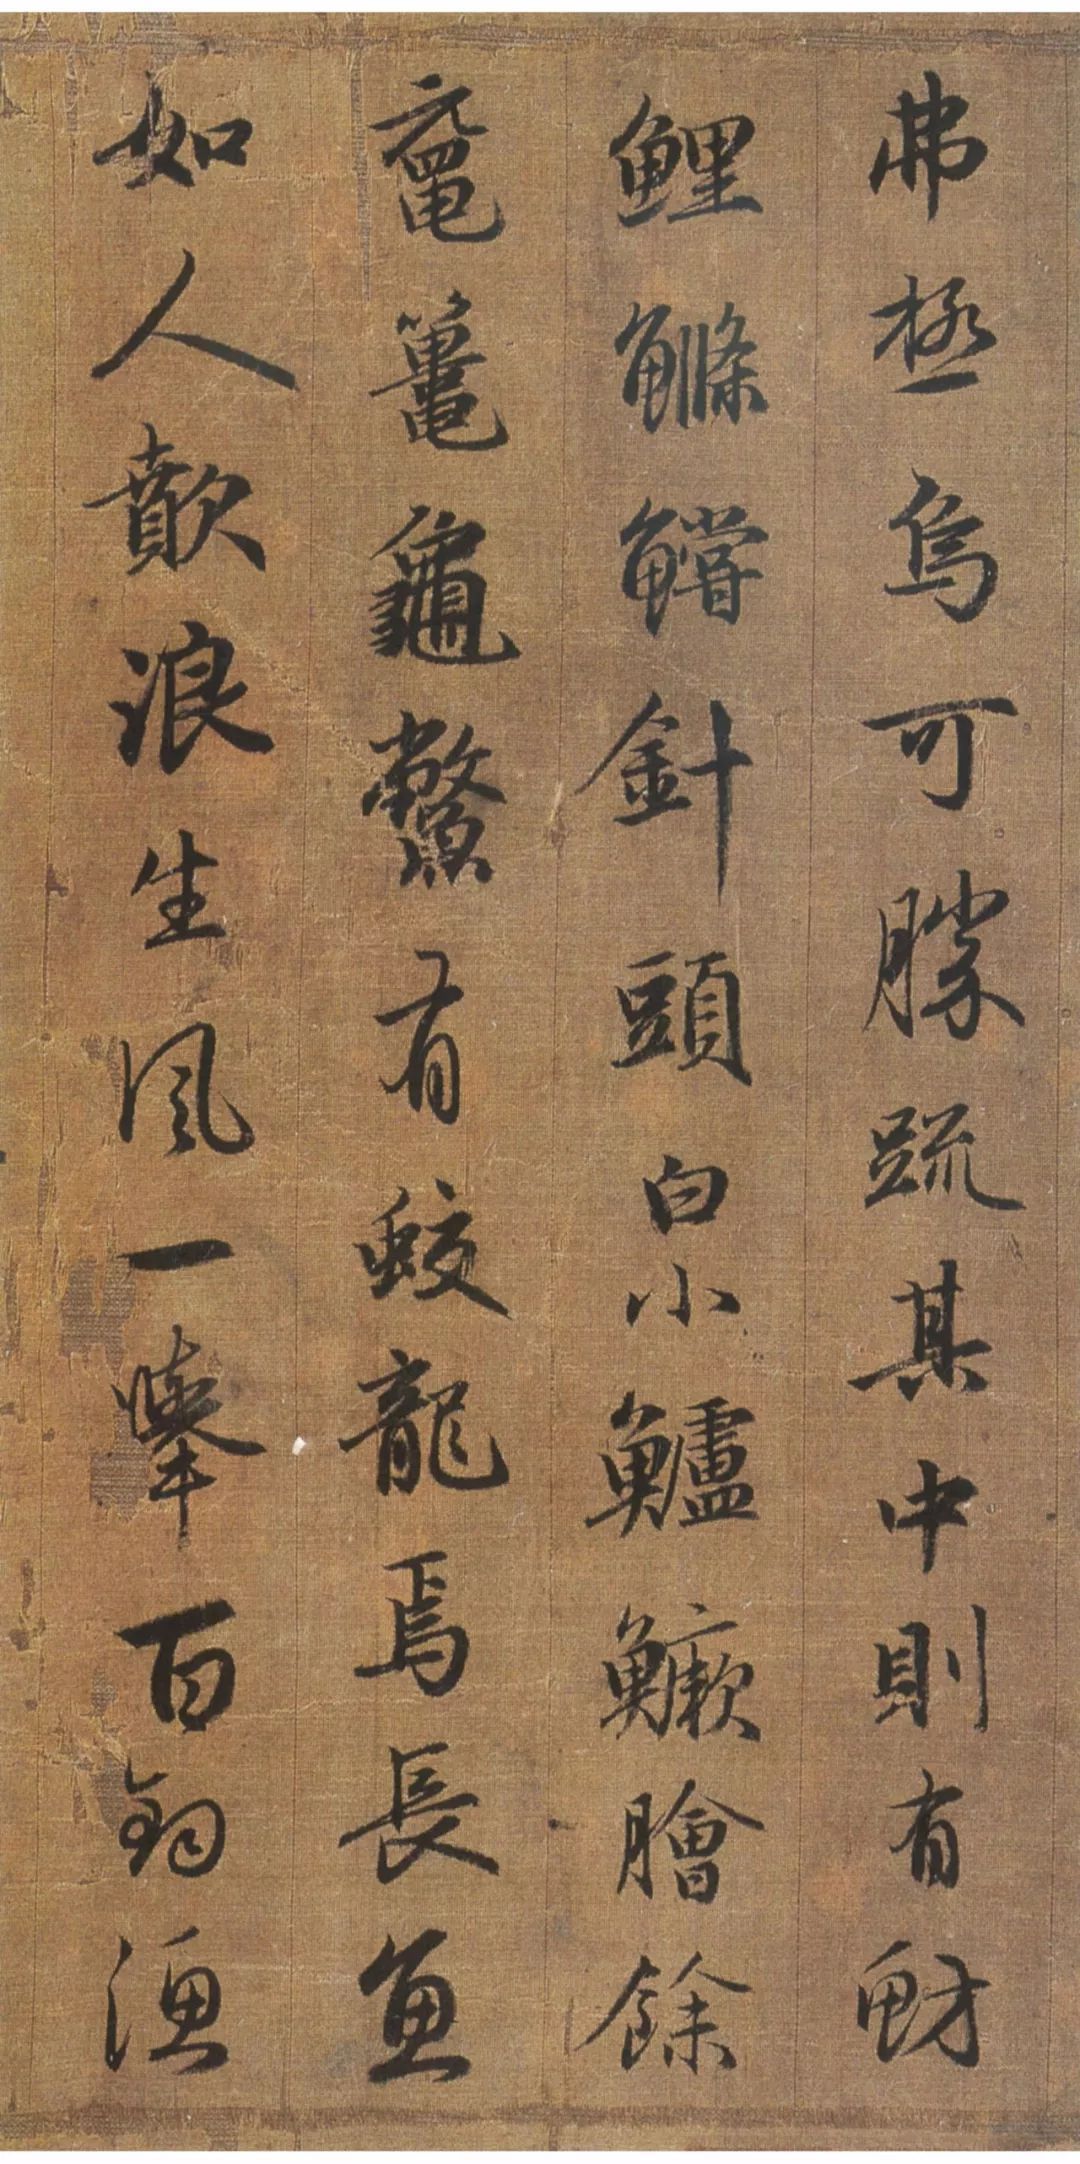 弗極烏可勝䟽其中則有
鯉鰷鱨針頭白小鱸鱖膾餘
黿鼉龜鱉有蛟龍焉長魚
如人歕浪生風一舉百鈞漁